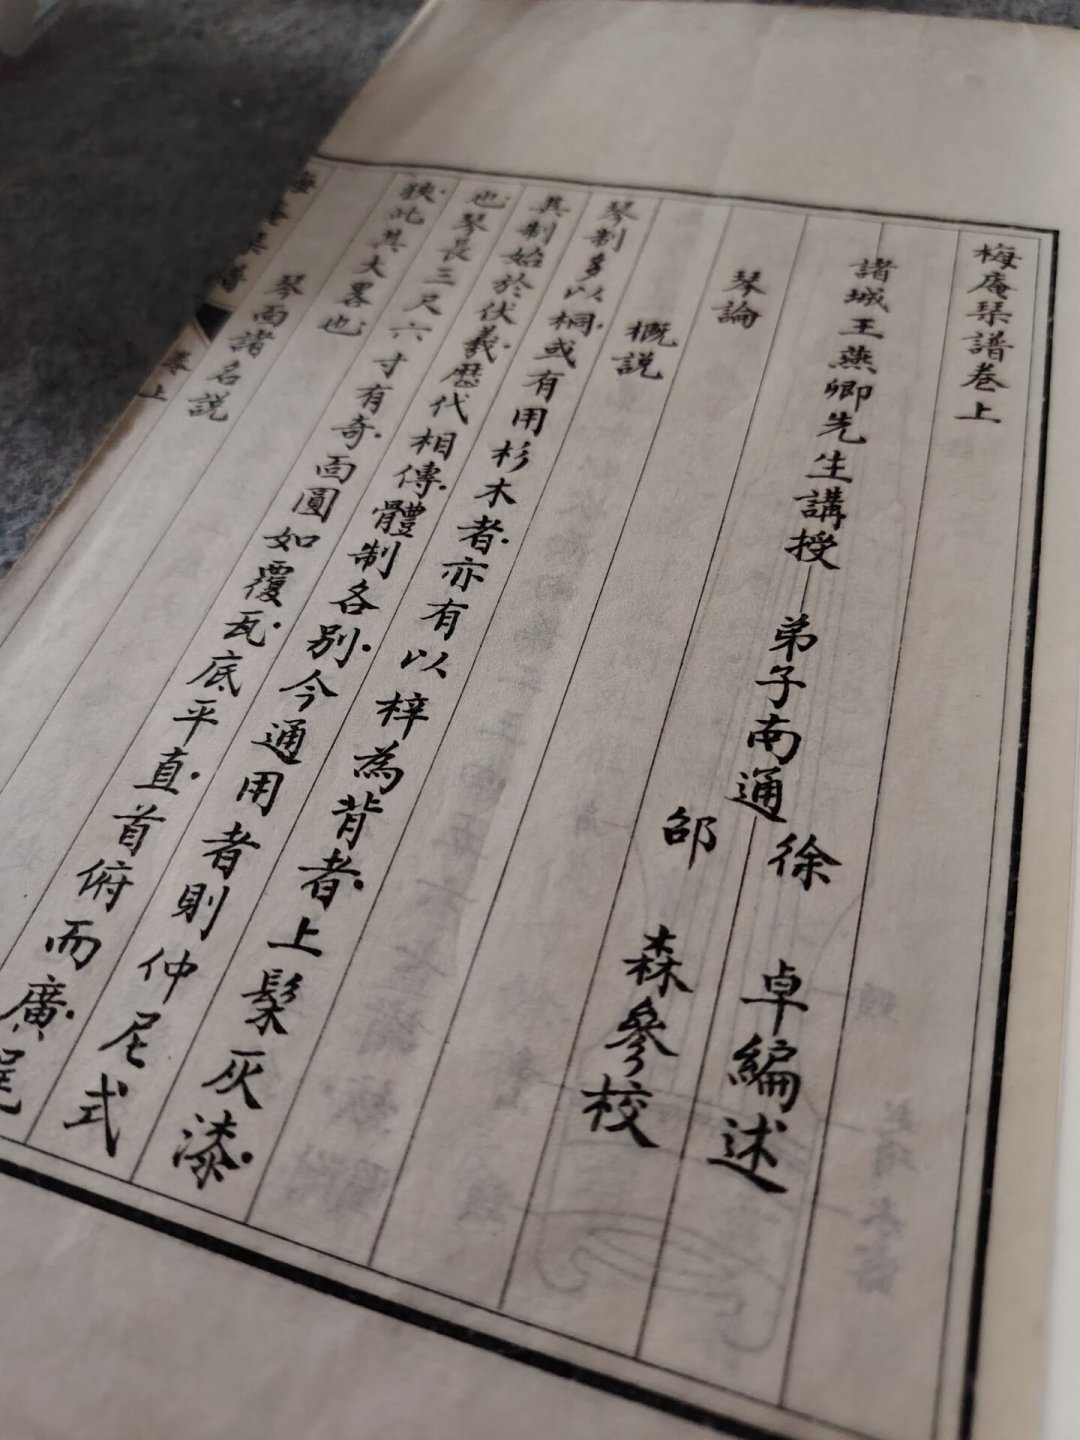 梅庵琹譜卷上
諸城王燕卿先生講授 弟子南通徐卓編述
邵森參校
琴論
概説
琴制多以桐或有用杉木者亦有以梓為背者上髹灰漆
其制始於伏羲歷代相傳體制各別今通用者則仲尼式
也琴長三尺六寸有奇面圓如覆瓦底平直首俯而廣尾
狹此其大畧也
琴面諸名説
梅庵琹譜 卷上